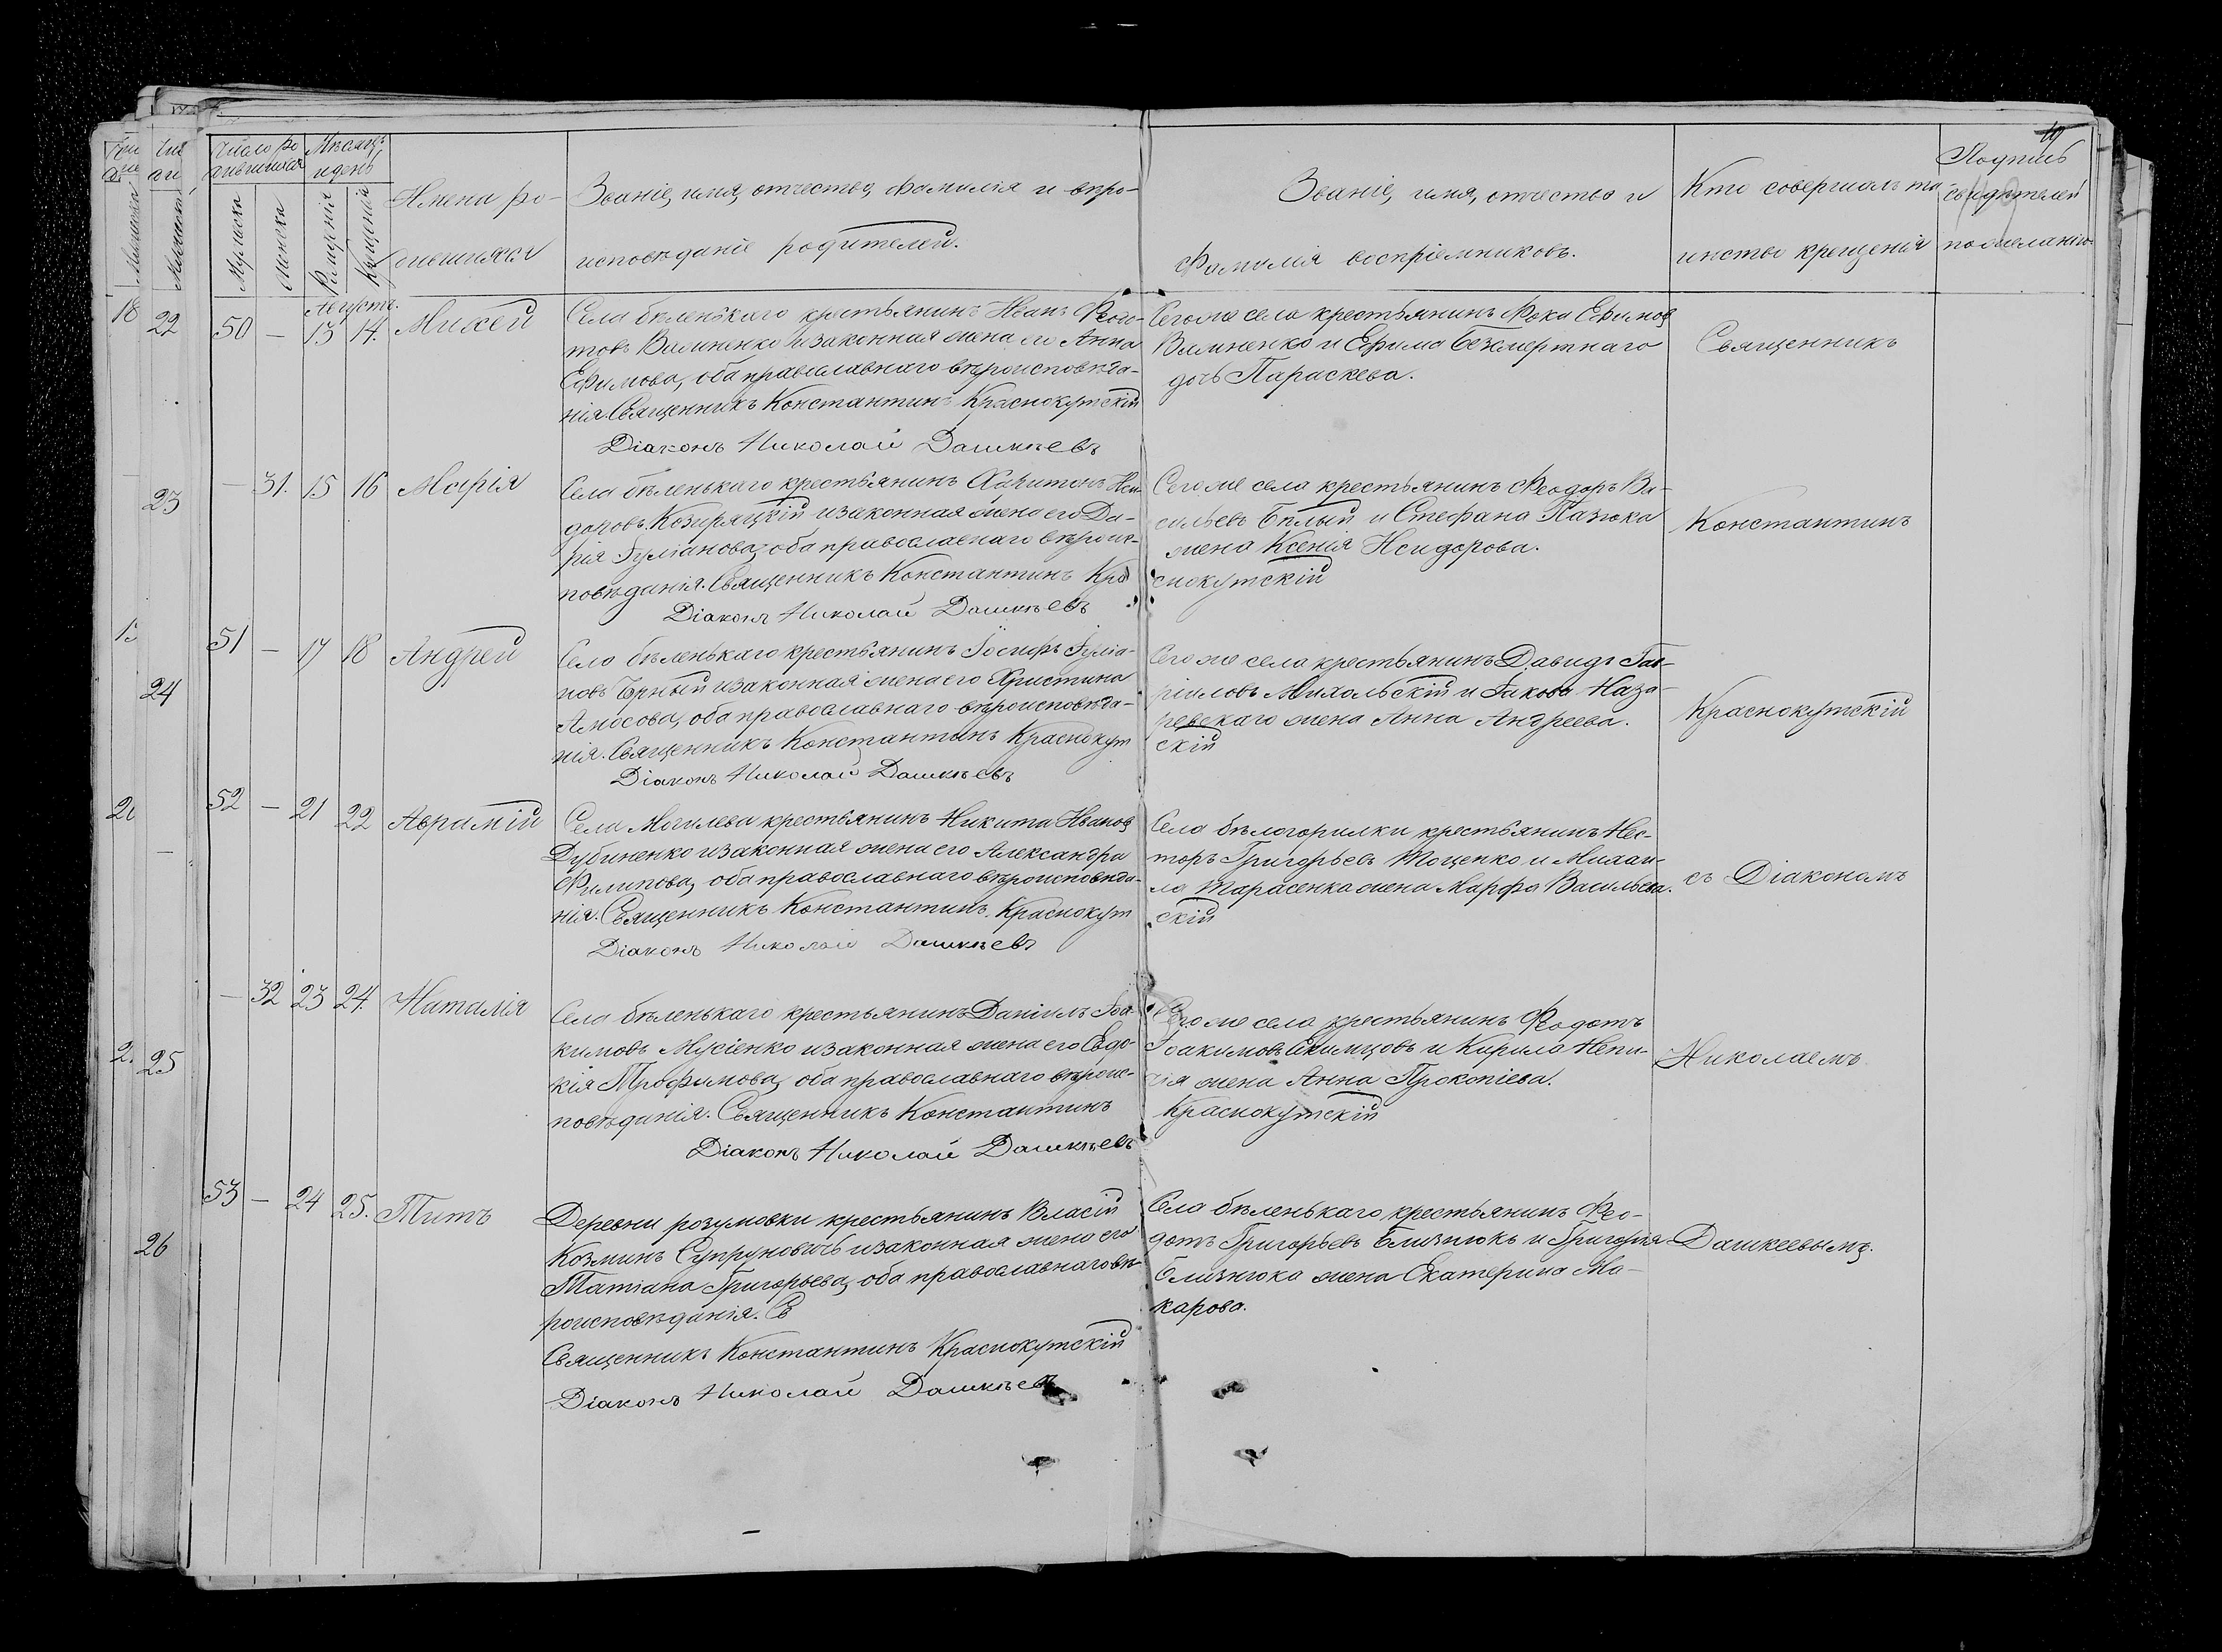 10
Число ро
дившихся
Мѣсяцъ
и день
Мужеска
Женска
Рожденія
Крещенія
Имена ро-
дившихся
Званіе, имя, отчество, фамилія и вѣро-
исповѣданіе родителей.
Званіе, имя, отчество и
фамилія воспріемниковъ.
Кто совершалъ та
инство крещенія
Подпись
свидѣтелей
по желанію
Августъ.
50 — 13 14. Михей
Села бѣленькаго крестьянинъ Иванъ Ѳеок-
товъ Вакиненко и законная жена его Анна
Ефимова, оба православнаго вѣроисповѣда-
нія. Священникъ Константинъ Краснокутскій
Діаконъ Николай Дашкѣевъ
Сегоже села крестьянинъ Фока Ефимовъ
и Ефима Безсмертнаго
дочь Параскева.
Священникъ
— 31. 15 16 Марія
Села бѣленькаго крестьянинъ Харитонъ Иси-
доровъ Козиряцкій и законная жена его Да-
рія Іуліанова, оба православнаго вѣроис-
повѣданія. Священникъ Константинъ Кра
Діаконъ Николай Дашкѣевъ
Сегоже села крестьянинъ Ѳеодоръ Ва-
сильевъ Бѣлый и Стефана Пазюка
жена Ксенія Исидорова.
снокутскій
Константинъ
51 — 17 18 Андрей
Села бѣленькаго крестьянинъ Іосифъ Іуліа-
новъ Чрный и законная жена его Христина
Амосова, оба православнаго вѣроисповѣда-
нія. Священникъ Константинъ Краснокут
Діаконъ Николай Дашкѣевъ
Сегоже села крестьянинъ Давидъ Гав-
ріиловъ Михальскій и Іакова Наза-
ревскаго жена Анна Андреева.
скій
Краснокутскій
52 — 21 22 Аврамій
Села Могилева крестьянинъ Никита Ивановъ
Дубиненко и законная жена его Александра
Филипова, оба православнаго вѣроисповѣда-
нія. Священникъ Константинъ Краснокут
Діаконъ Николай Дашкѣевъ
Села бѣлогорилки крестьянинъ Нес-
торъ Григорьевъ Тоценко и Михаи-
ла Тарасенка жена Марфа Васильева.
скій
съ Діакономъ
— 32 23 24. Наталія
Села бѣленькаго крестьянинъ Даніилъ Іоа-
кимовъ Мусіенко и законная жена его Евдо-
кія Трофимова, оба православнаго вѣроис-
повѣданія. Священникъ Константинъ
Діаконъ Николай Дашкѣевъ
Сегоже села крестьянинъ Ѳеодотъ
Іоакимовъ Якимцовъ и Кирила Непи-
жена Анна Прокопіева.
Краснокутскій
Николаемъ
53 — 24 25. Титъ
Деревни розумовки крестьянинъ Власій
Козминъ Супруновичъ и законная жена его
Татіана Григорьева, оба православнаго вѣ-
роисповѣданія. Св
Священникъ Константинъ Краснокутскій
Діаконъ Николай Дашкѣевъ
Села бѣленькаго крестьянинъ Ѳео-
дотъ Григорьевъ Близнюкъ и Григорія
Близнюка жена Екатерина Ма-
карова.
Дашкеевымъ.
18
22
23
24
25
26